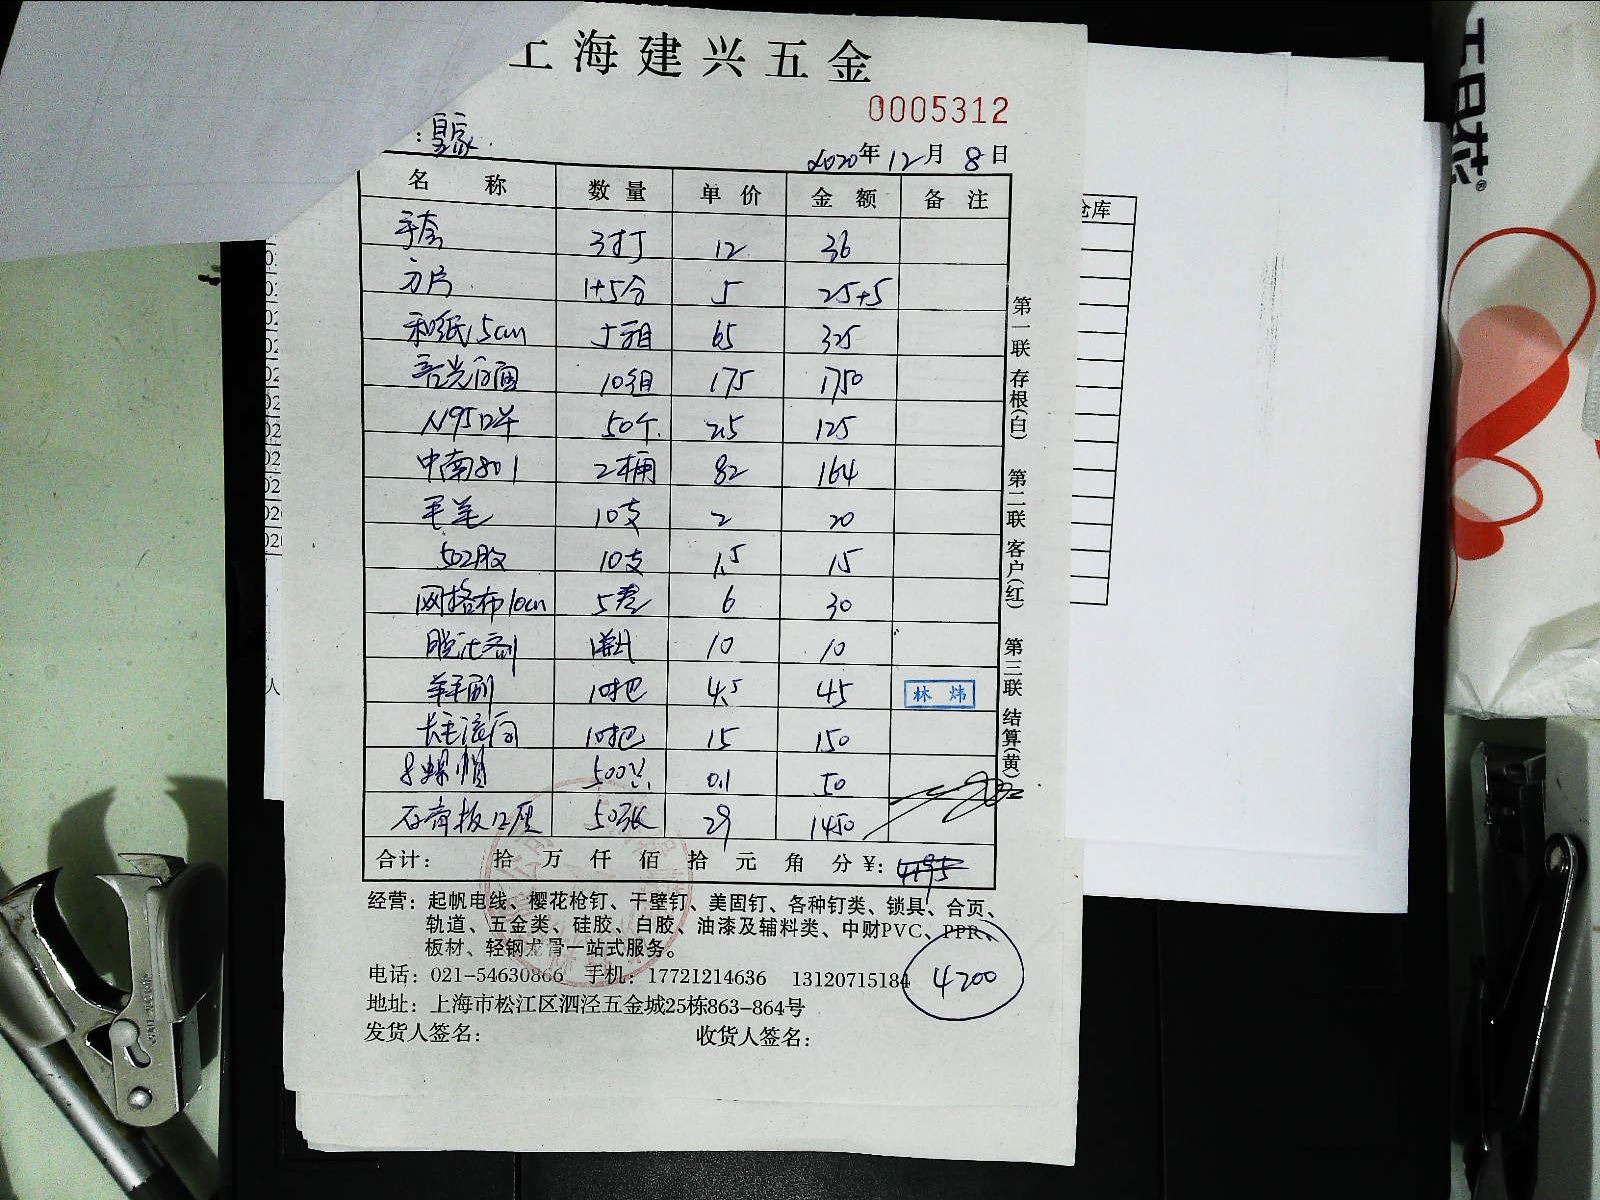 上海建兴五金
0005312
：皇家
2020年12月8日
名 称 数 量 单 价 金 额 备 注
手套 3打 12 36
方片 1+5合 5 25+5
和纸15cm 5组 65 325
10组 175 1750
N95口罩 50个 2.5 125
中南801 2桶 82 164
毛笔 10支 2 20
502胶 10支 1.5 15
网格布10cm 5卷 6 30
10 10
羊毛刷 10把 4.5 45
林 炜
长毛滚筒 10把 15 150
8螺帽 500只 0.1 50
石膏板12厚 50张 29 1450
合计： 拾 万 仟 佰 拾 元 角 分 ¥：4195
经营：起帆电线、樱花枪钉、干壁钉、美固钉、各种钉类、锁具、合页、
轨道、五金类、硅胶、白胶、油漆及辅料类、中财PVC、PPR、
板材、轻钢龙骨一站式服务。
4200
电话：021-54630866 手机：17721214636 13120715184
地址：上海市松江区泗泾五金城25栋863-864号
发货人签名： 收货人签名：
第一联 存根(白) 第二联 客户(红) 第三联 结算(黄)
仓库
人
工日芯®